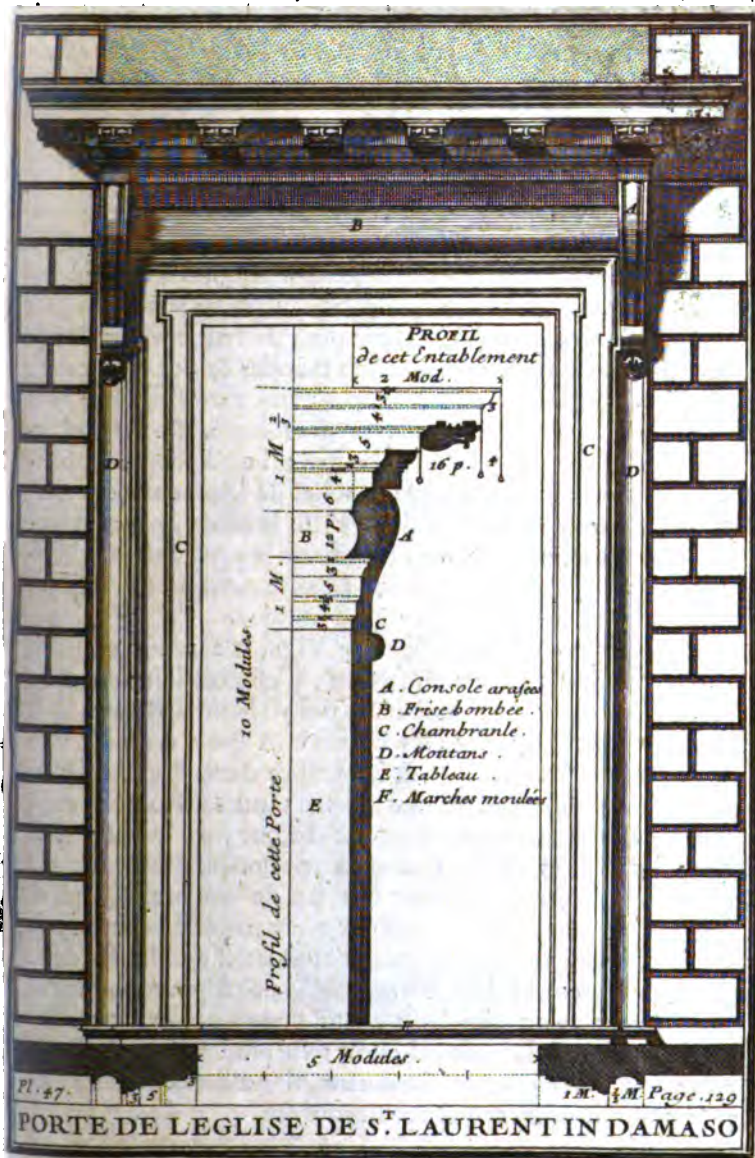 A
B
PROFIL
de cet Entablement
2 Mod.
16 p.
4
1 M 2/3
6
B 12 p. A
1 M.
C
D
D.
C
C
D
10 Modules.
Profil de cette Porte
E
A. Console arasées
B. Frise bombée.
C. Chambranle.
D. Montans.
E. Tableau
F. Marches moulées
F
5 Modules.
Pl. 47.
3 5
3
1 M. ½ M. Page. 129
PORTE DE LEGLISE DE S.T LAURENT IN DAMASO